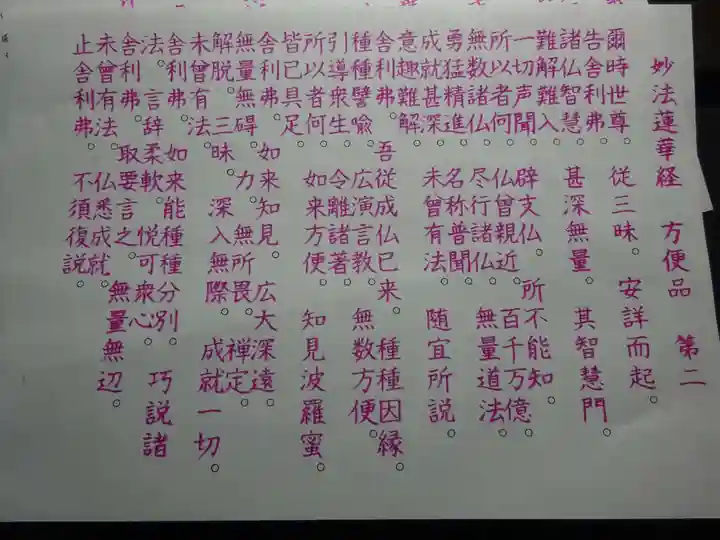 妙法蓮華経 方便品 第二
爾時世尊 従三昧。安詳而起。
告舎利弗。
諸仏智慧 甚深無量。其智慧門
難解難入。
一切声聞 辟支仏。所不能知。
所以者何。仏曾親近 百千万億
無数諸仏。尽行諸仏 無量道法。
勇猛精進。名称普聞。
成就甚深 未曾有法 随宜所説。
意趣難解。
舎利弗。吾従成仏已来。種種因縁。
種種譬喩。広演言教。無数方便。
引導衆生。令離諸著。
所以者何。如来方便 知見波羅蜜。
皆已具足。
舎利弗。如来知見。広大深遠。
無量無碍。力。無所畏。禅定。
解脱。三昧。深入無際 成就一切。
未曾有法。
舎利弗。如来能種種分別。巧説諸
法。言辞柔軟。悦可衆心。
舎利弗。取要言之。無量無辺。
未曾有法。仏悉成就。
止舎利弗。不須復説。